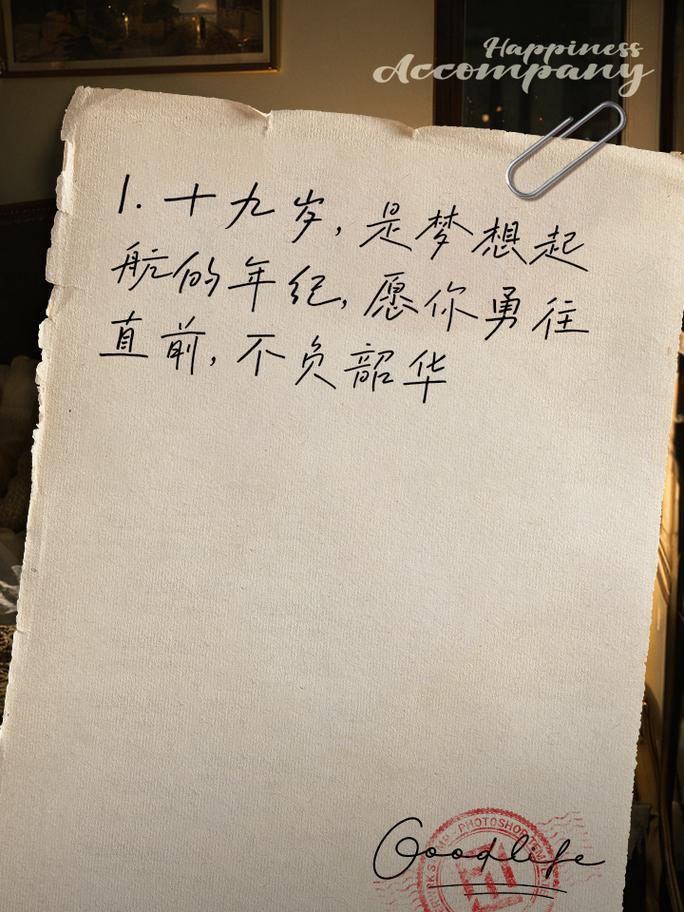 Happiness
Accompany
1. 十九岁，是梦想起
航的年纪，愿你勇往
直前，不负韶华
PHOTOSHOP
Goodlife